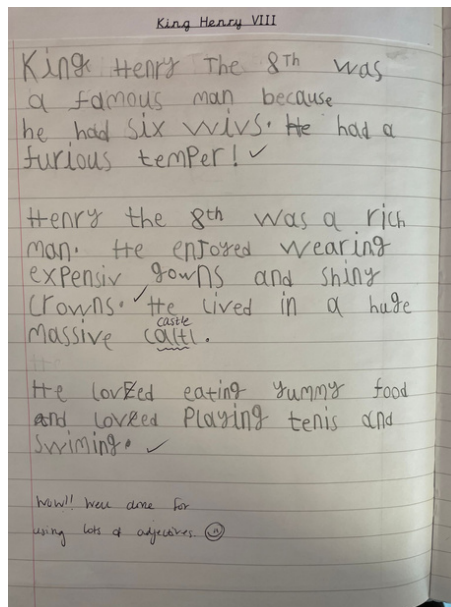 King Henry VIII
King Henry The 8Th was
a famous man because
he had six wivs. He had a
furious temper! ✓
Henry the 8th was a rich
man. He enjoyed wearing
expensiv gowns and shiny
crowns. ✓ He lived in a huge
castle
massive caltl.
He
He loveed eating yummy food
and loveed Playing tenis and
swiming. ✓
Wow!! Well done for
using lots of adjectives ☺